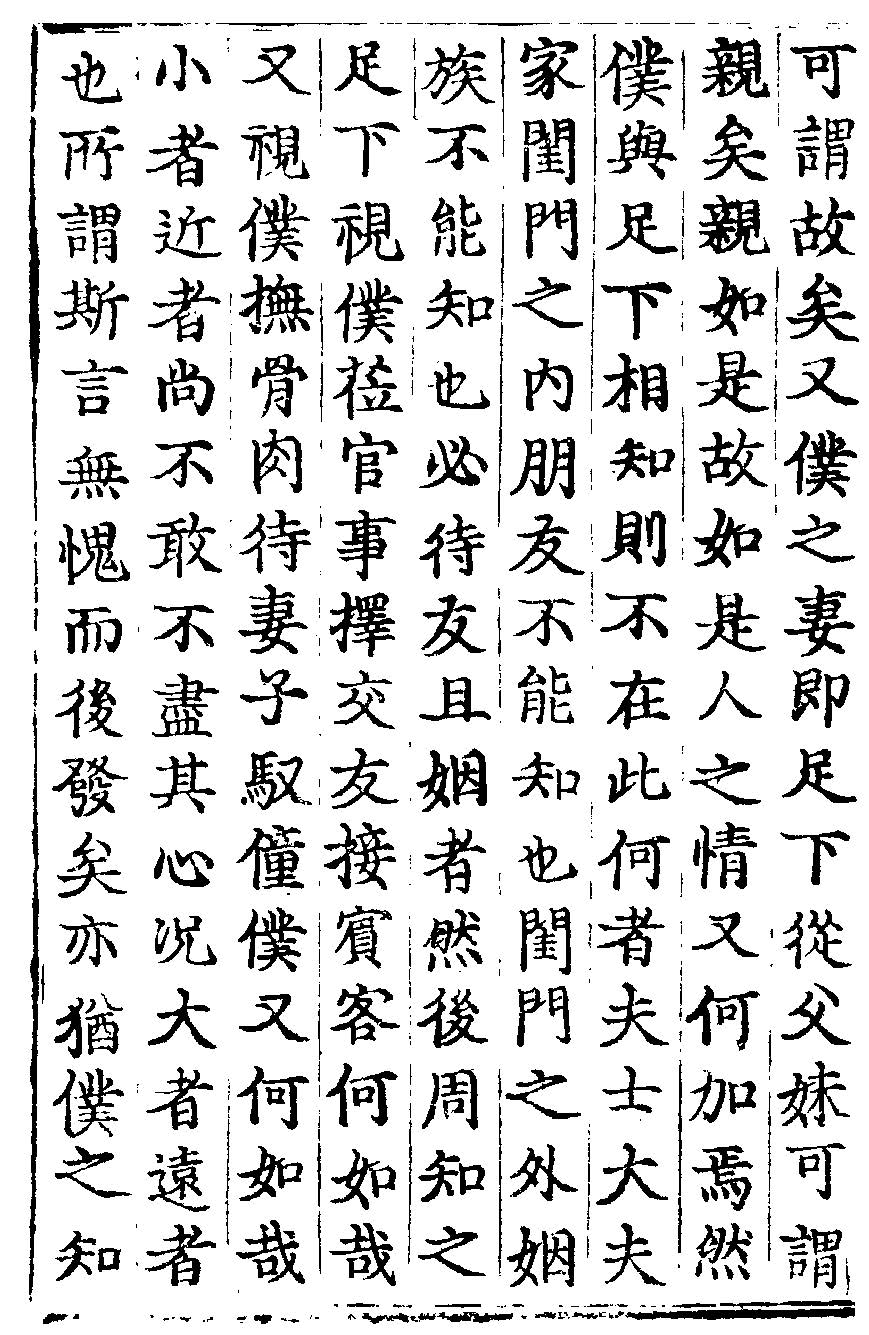 可謂故矣又僕之妻即足下從父妹可謂
親矣親如是故如是人之情又何加焉然
僕與足下相知則不在此何者夫士大夫
家閨門之內朋友不能知也閨門之外姻
族不能知也必待友且姻者然後周知之
足下視僕莅官事擇交友接賓客何如哉
又視僕撫骨肉待妻子馭僮僕又何如哉
小者近者尚不敢不盡其心况大者遠者
也所謂斯言無愧而後發矣亦猶僕之知